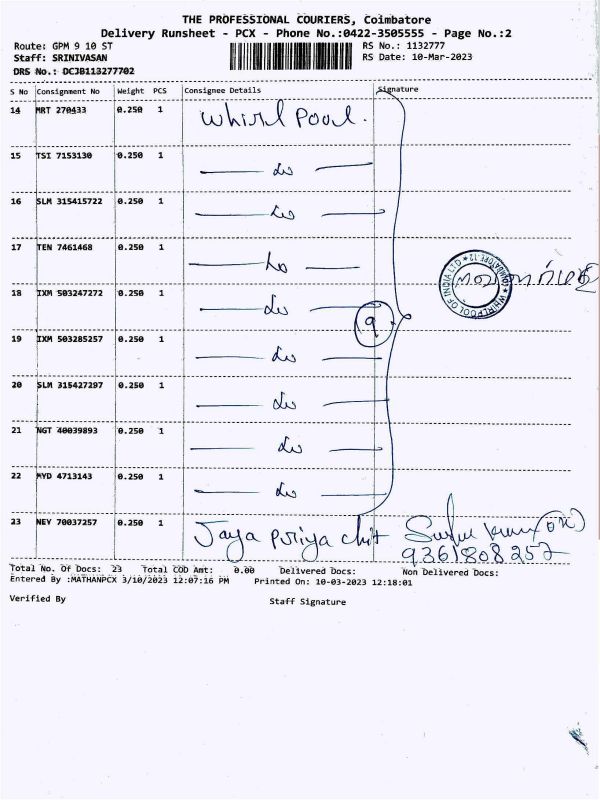 THE PROFESSIONAL COURIERS, Coimbatore
Delivery Runsheet - PCX - Phone No.:0422-3505555 - Page No.:2
Route: GPM 9 10 ST RS No.: 1132777
Staff: SRINIVASAN RS Date: 10-Mar-2023
DRS No.: DCJB113277702
S No Consignment No Weight PCS Consignee Details Signature
14 MRT 270433 0.250 1 Whirl Pool.
15 TSI 7153130 0.250 1 — do —
16 SLM 315415722 0.250 1 — do —
17 TEN 7461468 0.250 1 — do —
18 IXM 503247272 0.250 1 — do — 9
WHIRLPOOL OF INDIA LTD * COIMBATORE-12 *
19 IXM 503285257 0.250 1 — do —
20 SLM 315427297 0.250 1 — do —
21 NGT 40039893 0.250 1 — do —
22 MYD 4713143 0.250 1 — do —
23 NEV 70037257 0.250 1 Jaya priya chit
9361808257
Total No. Of Docs: 23 Total COD Amt: 0.00 Delivered Docs: Non Delivered Docs:
Entered By :MATHANPCX 3/10/2023 12:07:16 PM Printed On: 10-03-2023 12:18:01
Verified By Staff Signature